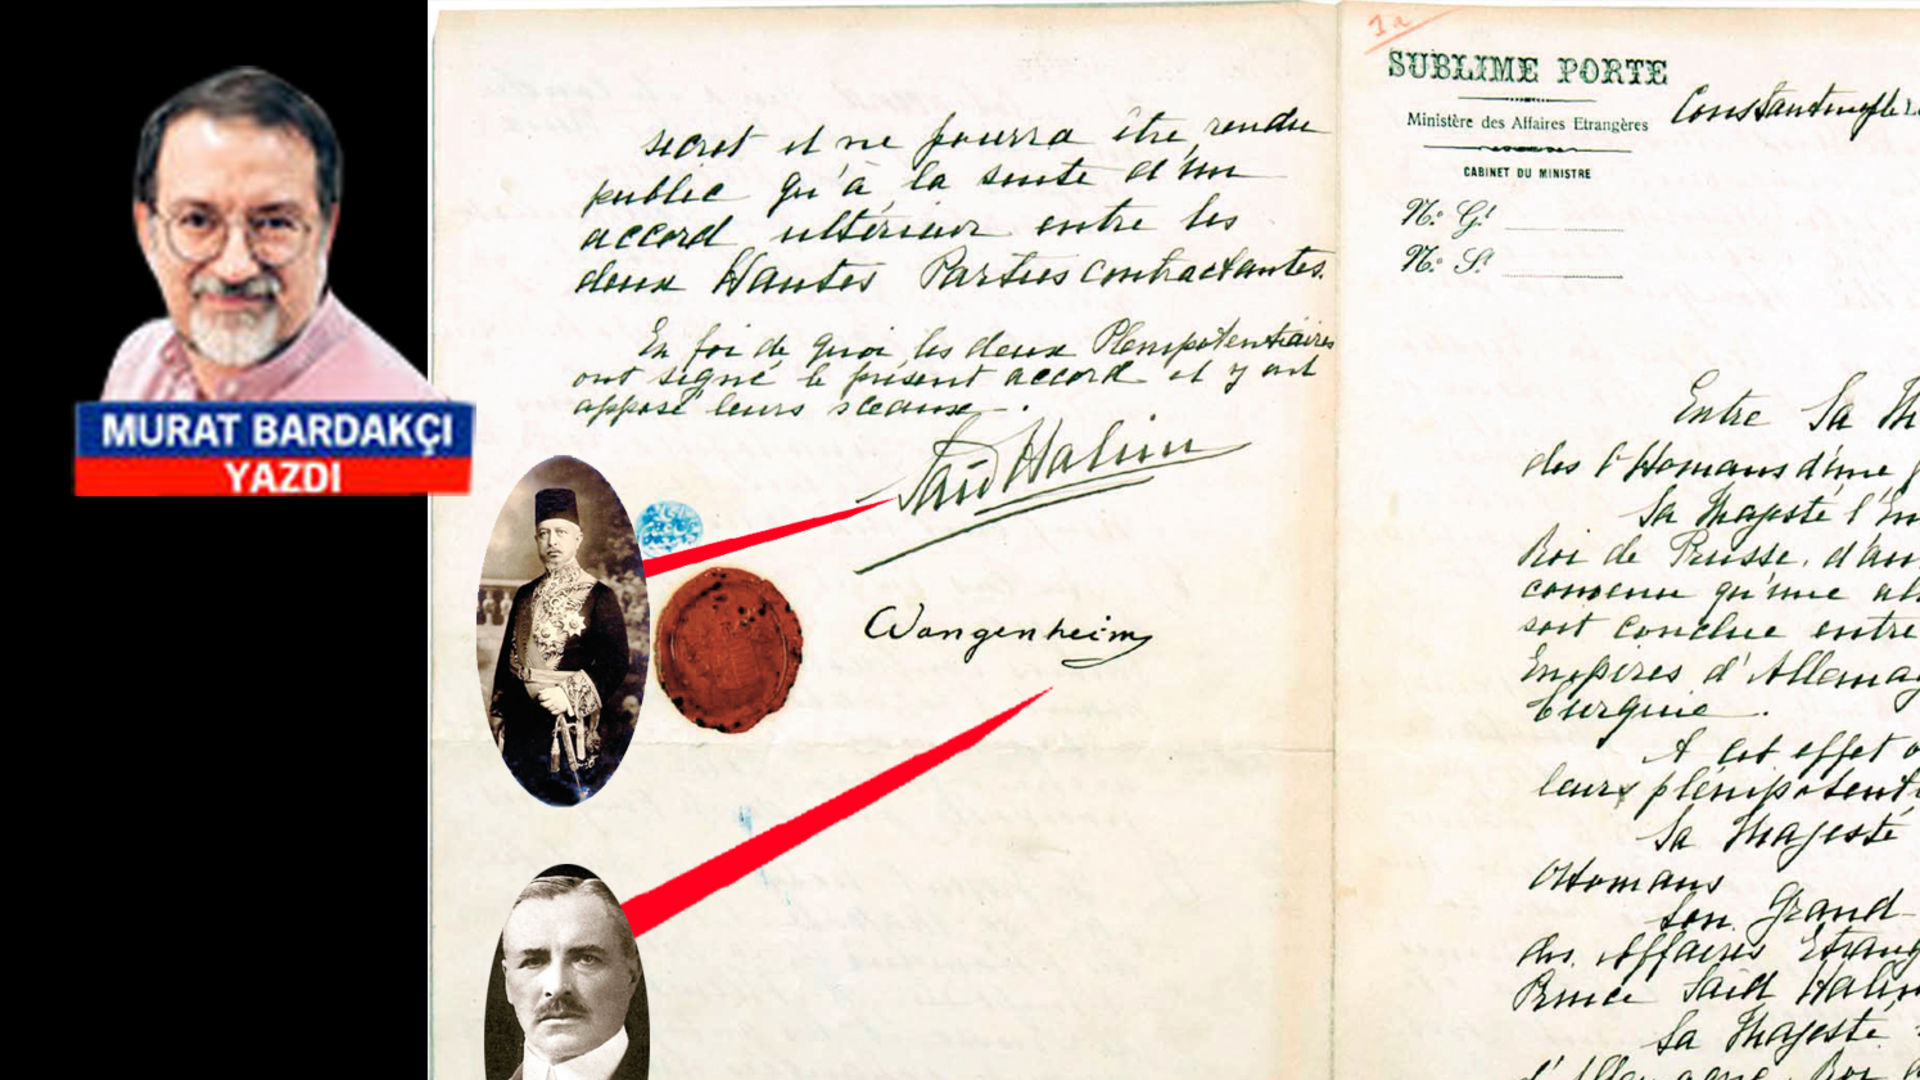 MURAT BARDAKÇI
YAZDI
secret et ne pourra être rendu
public qu'à la suite d'un
accord ultérieur entre les
deux Hautes Parties contractantes.
En foi de quoi les deux Plenipotentiaires
ont signé le présent accord et y ont
apposé leurs sceaux.
Saïd Halim
Wangenheim
1a
SUBLIME PORTE
Ministère des Affaires Etrangères
CABINET DU MINISTRE
Constantinople Le
N.º G.l
N.º S.l
Entre Sa M
des Ottomans d'une p
Sa Majesté l'Em
Roi de Prusse, d'au
convenu qu'une al
soit conclue entre
Empires d'Allemag
Turquie.
A cet effet o
leurs plénipotenti
Sa Majesté
Ottomans
Son Grand-
des Affaires Etrang
Prince Saïd Halim
Sa Majesté
d'Allemagne, Roi